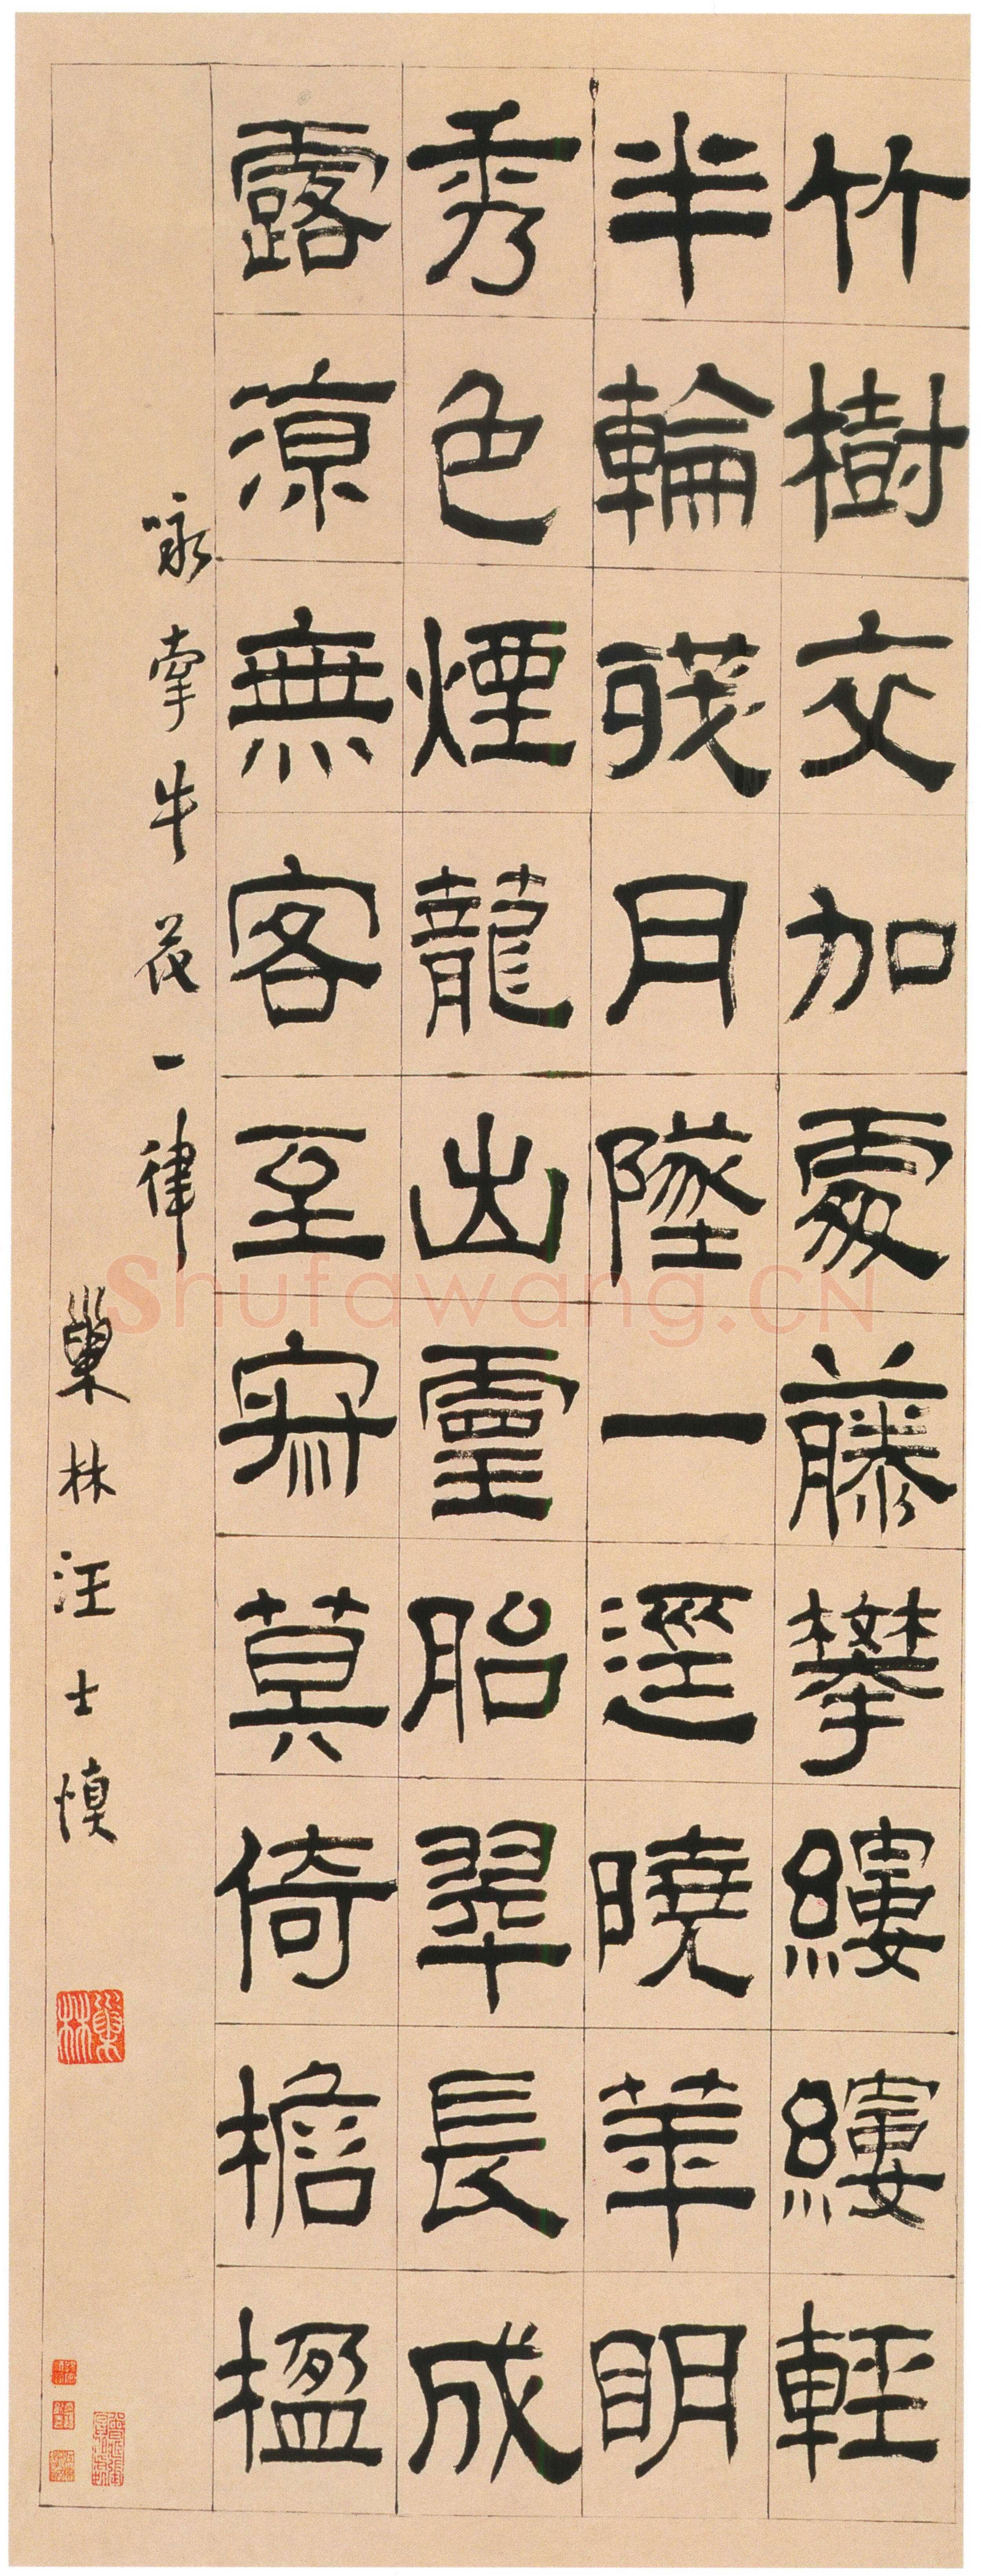 竹樹交加處藤攀縷縷輕
半輪殘月墜一逕曉華明
秀色煙蘢出靈胎翠長成
露涼無客至寂莫倚檐楹
咏牽牛花一律
巢林汪士慎
巢林
Shufawang.CN